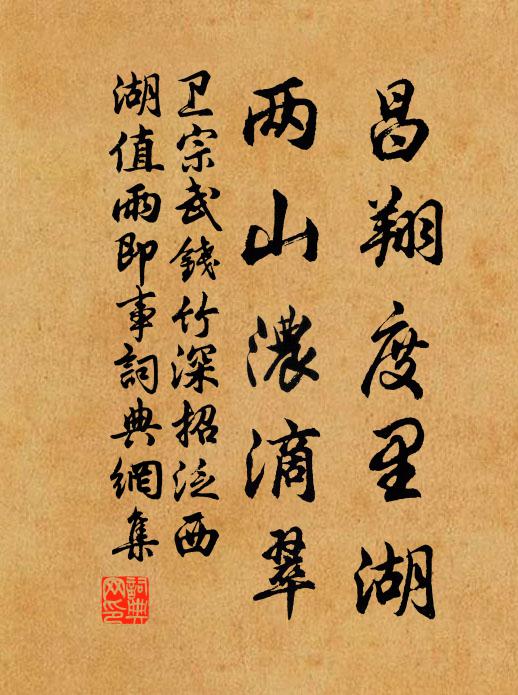 昌翔度里湖
两山濃滴翠
卫宗武錢竹深招泛西
湖值雨即事詞典網集
詞典网印